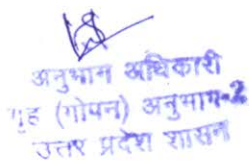 अनुभाग अधिकारी
गृह (गोपन) अनुभाग-2
उत्तर प्रदेश शासन